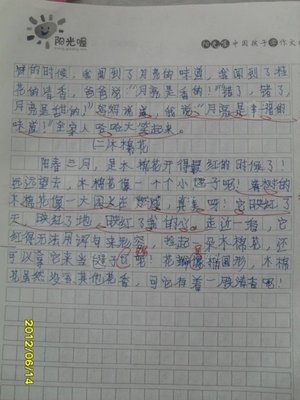 阳光喔
阳光喔中国孩子的作文
的时候，爸闻到了月亮的味道，爸闻到了桂
花的清香，爸爸说“月亮是香的！”“错了，错了，
月亮是甜的！”妈妈说，我说“月亮是幸福的
味道！”全家人哈哈大笑起来。
(二)木棉花
阳春三月，是木棉花开得最红的时候了！
远远望去，木棉花像一个个小毽子呢！满树的
木棉花像一大团火在燃烧，真美呀！它映红了
天，映红了地，映红了我的心。走近一看，它
红得无法用词句来形容，捡起一朵木棉花，还
可以拿它来当毽子呢！花瓣像椭圆形，木棉
花虽然没有其他花香，可它有着一股清香呢！
2012/06/14